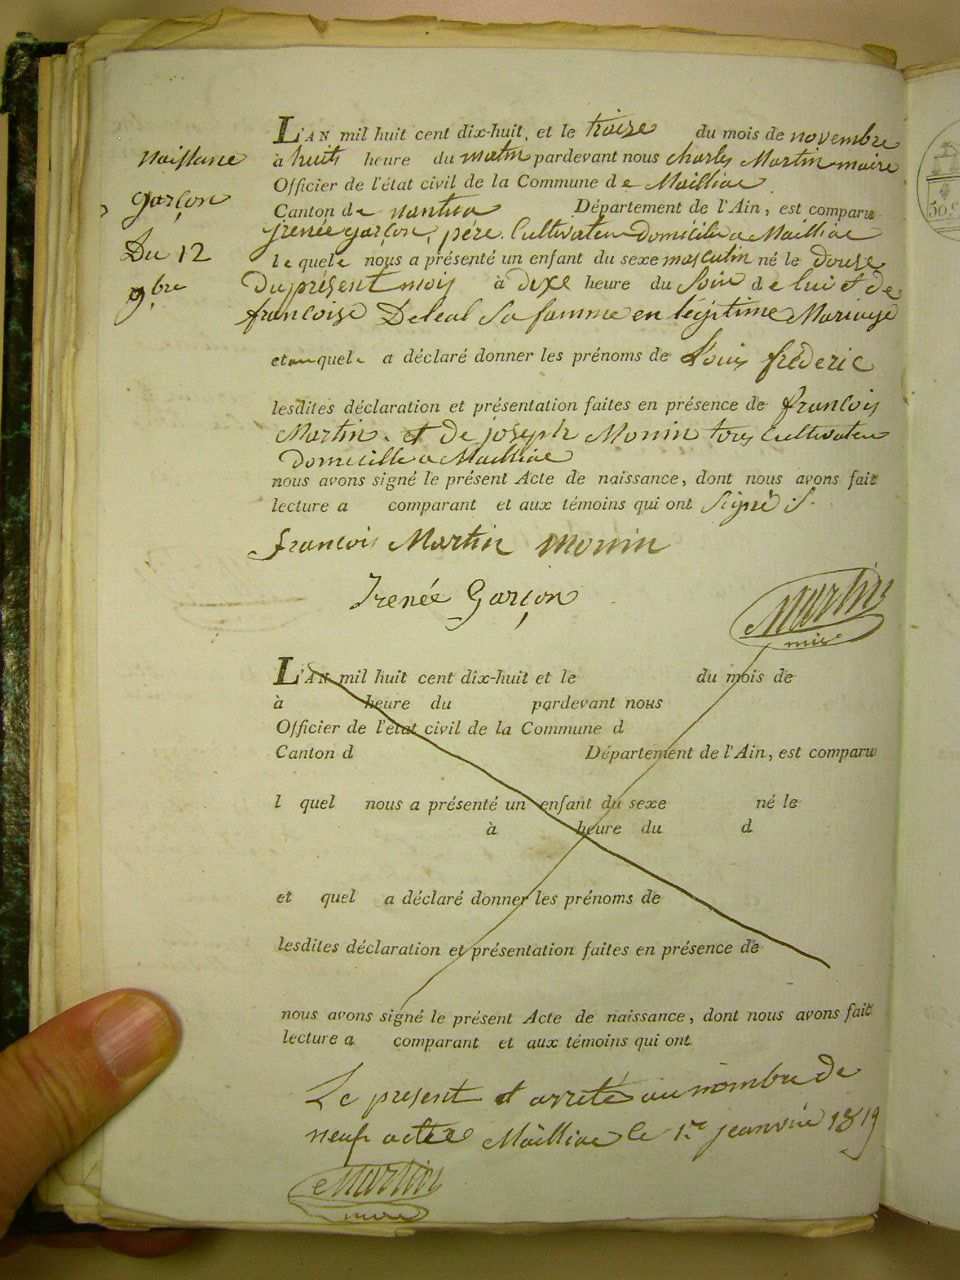 naissance
garçon
Du 12
9bre
L'AN mil huit cent dix-huit, et le treize du mois de novembre
à huit heure du matin pardevant nous charles Martin maire
Officier de l'état civil de la Commune de Mailliac
Canton de nantua Département de l'Ain, est comparu
irenée garçon, père. Cultivateu Domicilié a Mailliac
lequel nous a présenté un enfant du sexe masculin né le douse
Du présent mois à dixe heure du Soir de lui et de
françoise Deleal Sa famme en légitime Mariage
et auquel a déclaré donner les prénoms de Louis frederic
lesdites déclaration et présentation faites en présence de françois
Martin. et de joseph Monin tous Cultivateu
Domicillé a Mailliac
nous avons signé le présent Acte de naissance, dont nous avons fait
lecture a comparant et aux témoins qui ont Signé S.
françois Martin monin
Irenée Garçon
Martin
mire
L'AN mil huit cent dix-huit et le du mois de
à heure du pardevant nous
Officier de l'état civil de la Commune d
Canton d Département de l'Ain, est comparu
l quel nous a présenté un enfant du sexe né le
à heure du d
et quel a déclaré donner les prénoms de
lesdites déclaration et présentation faites en présence de
nous avons signé le présent Acte de naissance, dont nous avons fait
lecture a comparant et aux témoins qui ont
Le present et arreté au nombre de
neuf actes Mailliac le 1re jeanvié 1819
Martin
mire
50.C